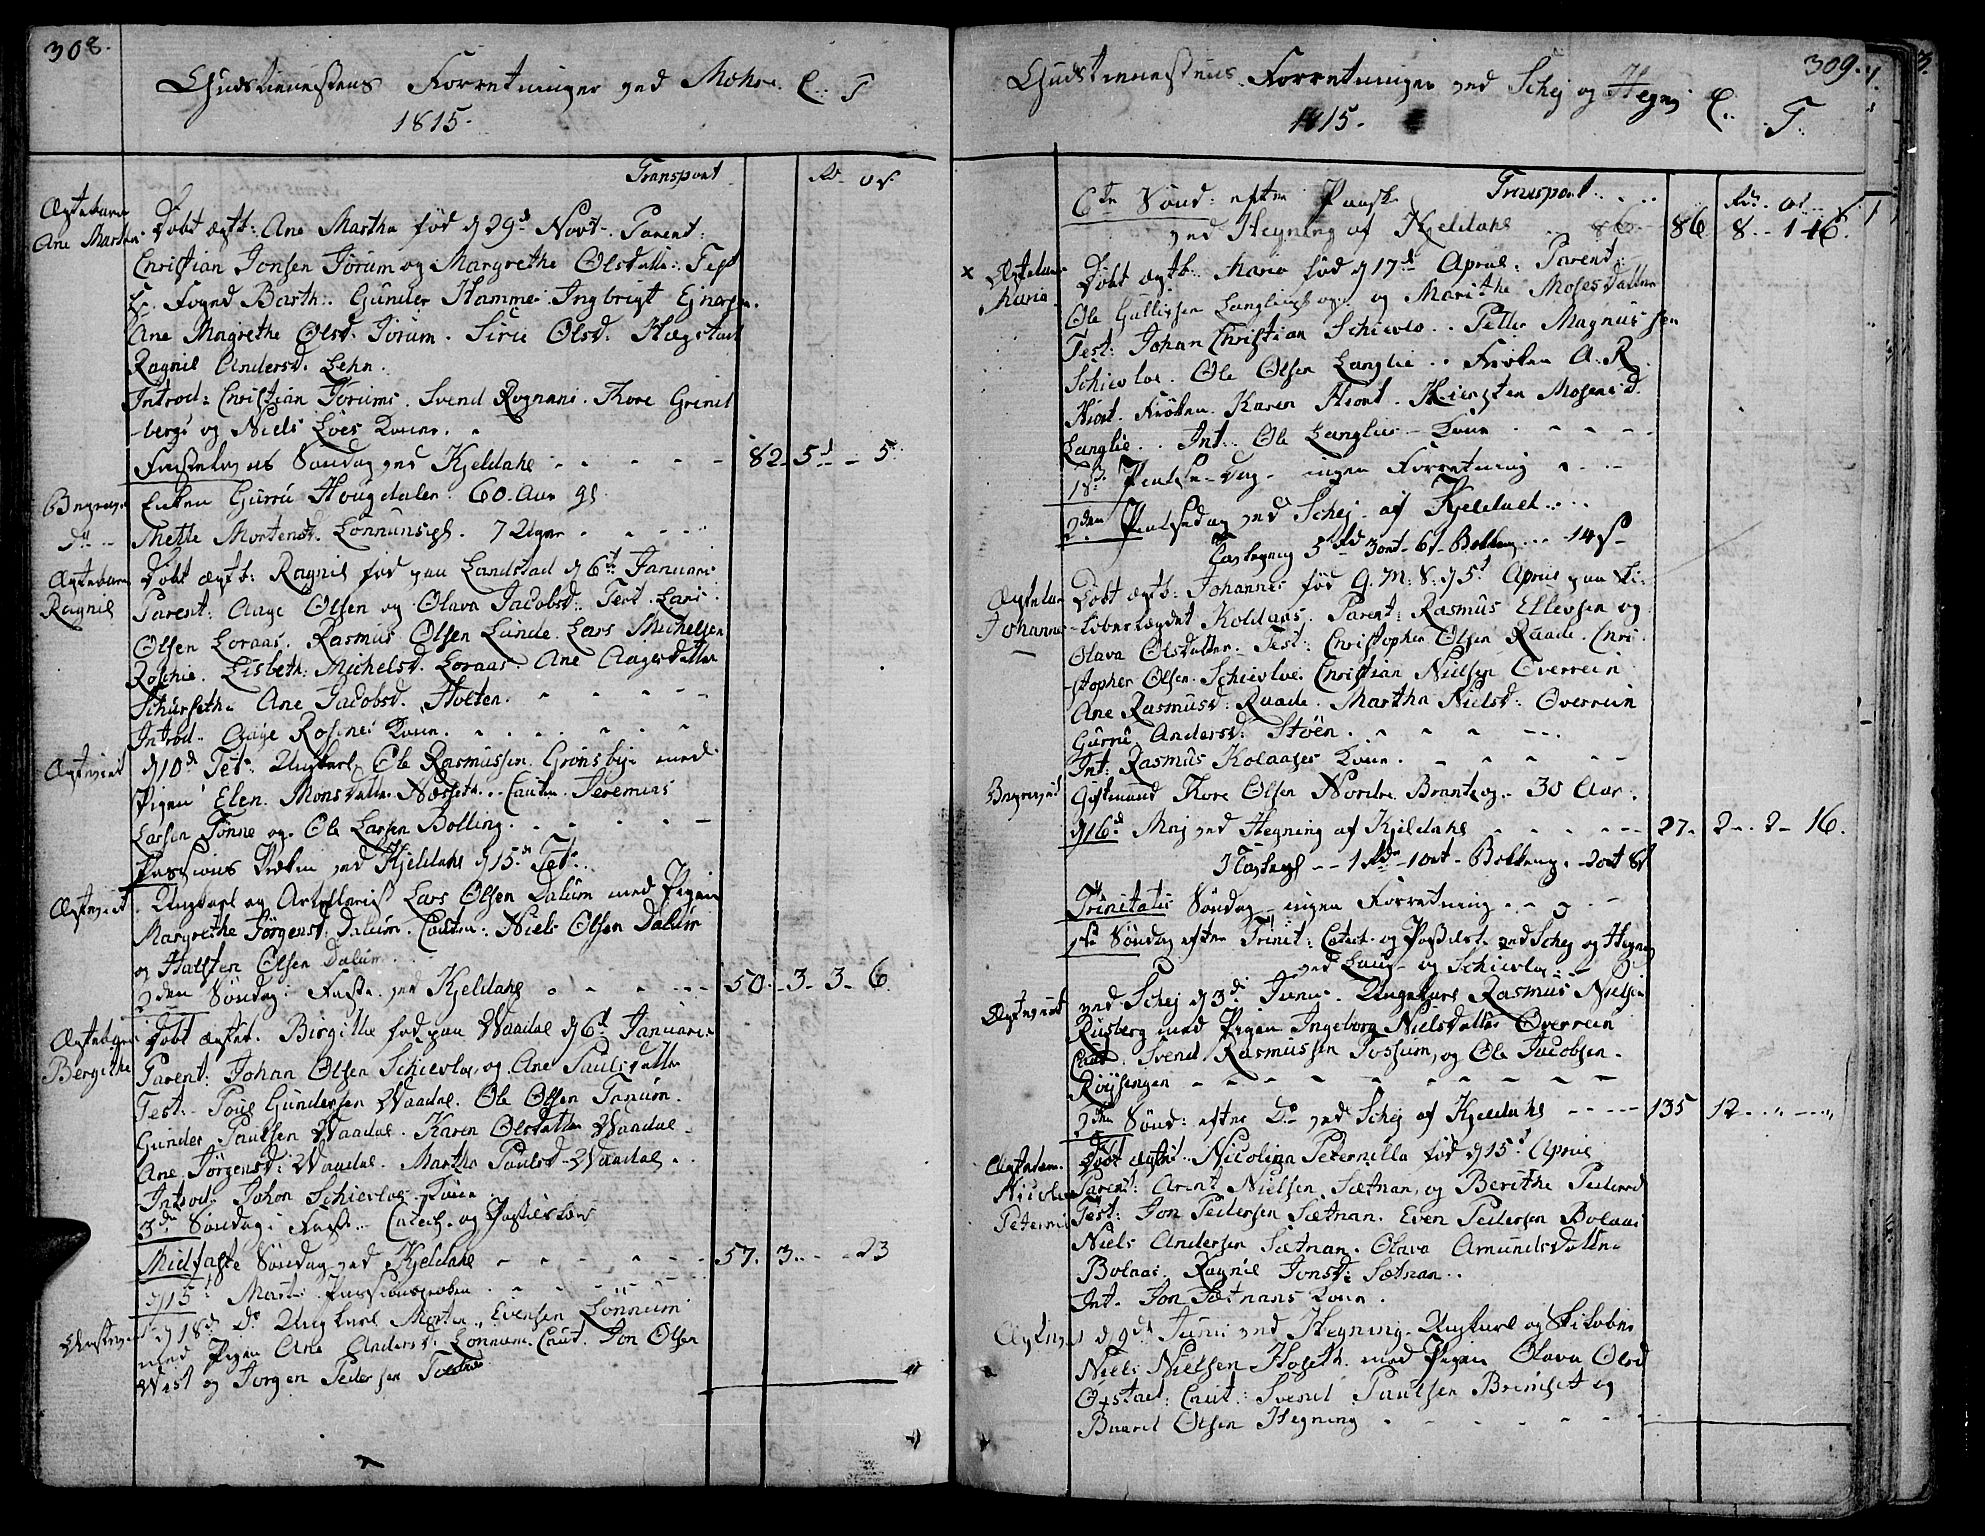 308.
Gudstienestens Forretninger ved Mohr. C. T
1815.
Transport. Rd. ort.
Ægtebarn
Ane Martha.
Døbt ægte: Ane Martha fød d 29d Novr. Parent:
Christian Jonsen Jorum og Margrethe Olsdatter. Test
Foged Barth: Gunder Hamme. Ingbrigt Ejnersen.
Ane Magrethe Olsd. Jorum. Siri Olsd. Hægstad
Ragnil Andersd. Lehn.
Introd: Christian Jorums. Svend Rognans. Thore Grind
-bergs og Niels Løes Koner.
Fastelavns Søndag ved Kjeldahl - - - 82. 5 - 5.
Begravet
Enken Gurru Hougdalen. 60 Aar gl
Do
Mette Mortensd. Lønnumsigl. 7 Uger
Ægtebarn
Ragnil
Døbt ægtb: Ragnil fød paa Landstad d 6te Januari
Parent: Aage Olsen og Olava Jacobsd. Test. Lars
Olsen Loraas. Rasmus Olsen Lunde. Lars Michelsen
Roshie. Lisbeth Michelsd. Loraas. Ane Aagesdatter
Ane Jacobsd. Holten.
Introd. Aage Koner.
Ægteviet
d 10d Ungkarl Ole Rasmussen Grønsbye med
Pigen Elen Monsdatter Næsseth. Cauten. Jeremias
Larsen Tønne og Ole Larsen Bolling.
Passions Preken ved Kjeldahl d 15de
Ægteviet
Ungkarl og Lars Olsen Dalum med Pigen
Margrethe Jørgensd. Dalum. Cauten: Niels Olsen Dalum
og Halsten Olsen Dalum.
2den Søndag i Faste ved Kjeldahl - - 50. - 3 - 3 - 6.
Ægtebarn
Bergithe
Døbt ægteb. Birgitha fød paa Waadal d 6te Januari.
Parent: Johan Olsen Schievloe og Ane Paulsdatter
Test: Poul Gundersen Waadal. Ole Olsen Tanum.
Gunder Paulsen Waadal. Karen Olsdatter Waadal.
Ane Jørgensd: Waadal. Martha Paulsd. Waadal.
Introd: Johan Schievloe Kone
3die Søndag i Faste - Catech. og
Midfaste Søndag ved Kjeldahl - - - 57. 3. - - 23
d 15d Marti Passionspreken.
d 18de do Ungkarl Morten Evensen Lønnum
med Pigen Ane Andersd. Lønnum. Caut. Jon Olsen
West og Jørgen Pedersen
309.
Gudstienestens Forretninger ved Schej og Hegni C. T.
1815.
Transport. Rd. ort
6te Sønd: efter Paaske
ved Hegning af Kjeldahl 86. 86 8 - 1 - 16.
x Ægtebarn
Maria
Døbt ægtb. Maria fød d 17d April. Parent:
Ole Gullissen Langlie og Marithe Mosesdatter
Test: Johan Christian Schievlo. Petter Magnussen
Schievloe. Ole Olsen Langlie. Frøken A. R.
Hiort. Frøken Karen Hiort. Kiersten Mosensd.
Langlie. Int. Ole Langlies Kone
1ste Pintse-Dag - ingen Forretning
2den Pintsedag ved Schej af Kjeldahl
5 Rd 3 ort 6 s 14 s
Ægtebarn
Johannes
Døbt ægtb: Johannes fød d 5d April paa
Koldaas. Parent: Rasmus Ellevsen og
Olava Olsdatter. Test: Christopher Olsen Raade. Chri
-stopher Olsen Schievloe. Christian Nielsen Overrein
Ane Rasmusd: Raade. Martha Nielsd. Overrein
Gurru Andersd: Støen.
Int: Rasmus Kolaases Kone.
Begravet
Giftmand Thore Olsen Nordre Brantzog. 30 Aar.
d 16d Maj ved Hegning af Kjeldahl - - 27. 2 - 2 - 16.
1 Rd 1 ort 2 ort 8 s
Trinitatis Søndag - ingen Forretning
1ste Søndag efter Trinit: Catech. og ved Schej og Hegning
ved og Schievloe
Ægteviet
ved Schej d 3d Juni. Ungkarl Rasmus Nielsen
Rusberg med Pigen Ingeborg Nielsdatter Overrein
Caut. Svend Rasmussen Fossum, og Ole Jacobsen
2den Sønd: efter Do ved Schej af Kjeldahl - - 135 12 - „ - „
Ægtebarn
Nicolina
Peternil
Døbt ægteb: Nicolina Peternilla fød d 15d April
Parent: Arent Nielsen Sætnan, og Berithe Pedersd
Test: Jon Pedersen Sætnan. Even Pedersen Bolaas
Niels Andersen Sætnan. Olava Amundsdatter
Bolaas. Ragnil Jonsd: Sætnan.
Int. Jon Sætnans Kone.
Ægteviet
d 9d Juni ved Hegning. Ungkarl og Skiløber
Niels Nielsen Hoseth med Pigen Olava Olsd
Caut: Svend Paulsen Brimset og
Baard Olsen Hegning